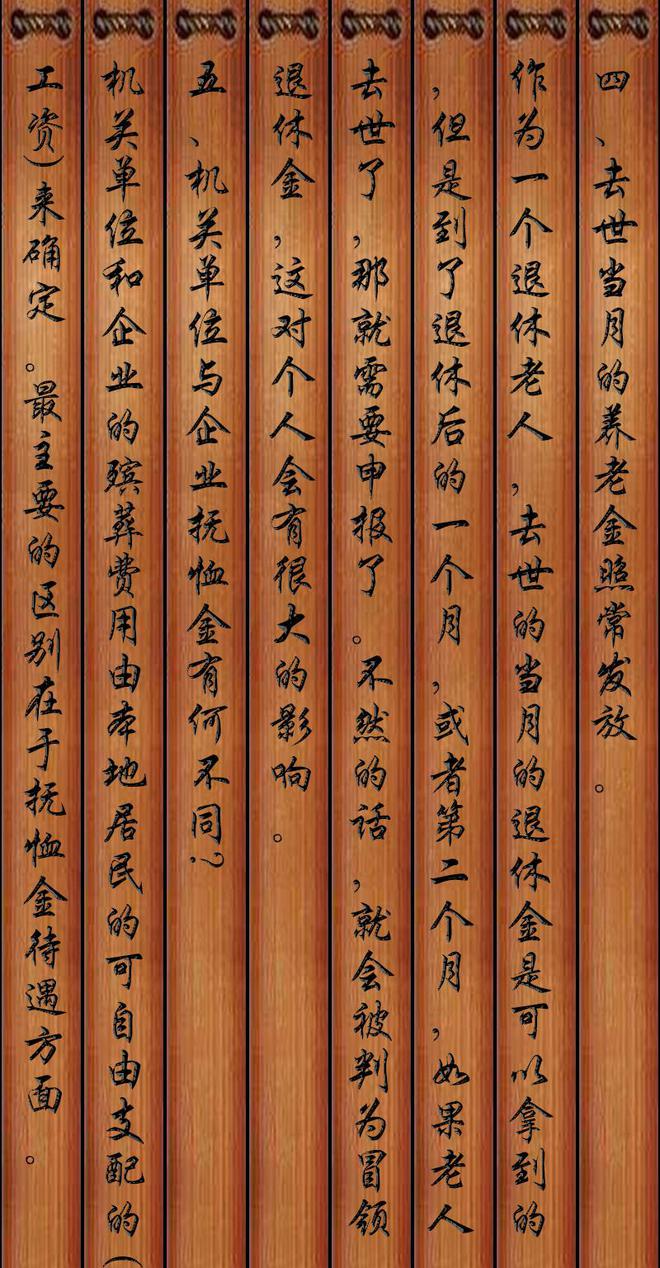 四、去世当月的养老金照常发放。
作为一个退休老人，去世的当月的退休金是可以拿到的
，但是到了退休后的一个月，或者第二个月，如果老人
去世了，那就需要申报了。不然的话，就会被判为冒领
退休金，这对个人会有很大的影响。
五、机关单位与企业抚恤金有何不同？
机关单位和企业的殡葬费用由本地居民的可自由支配的（
工资）来确定。最主要的区别在于抚恤金待遇方面。